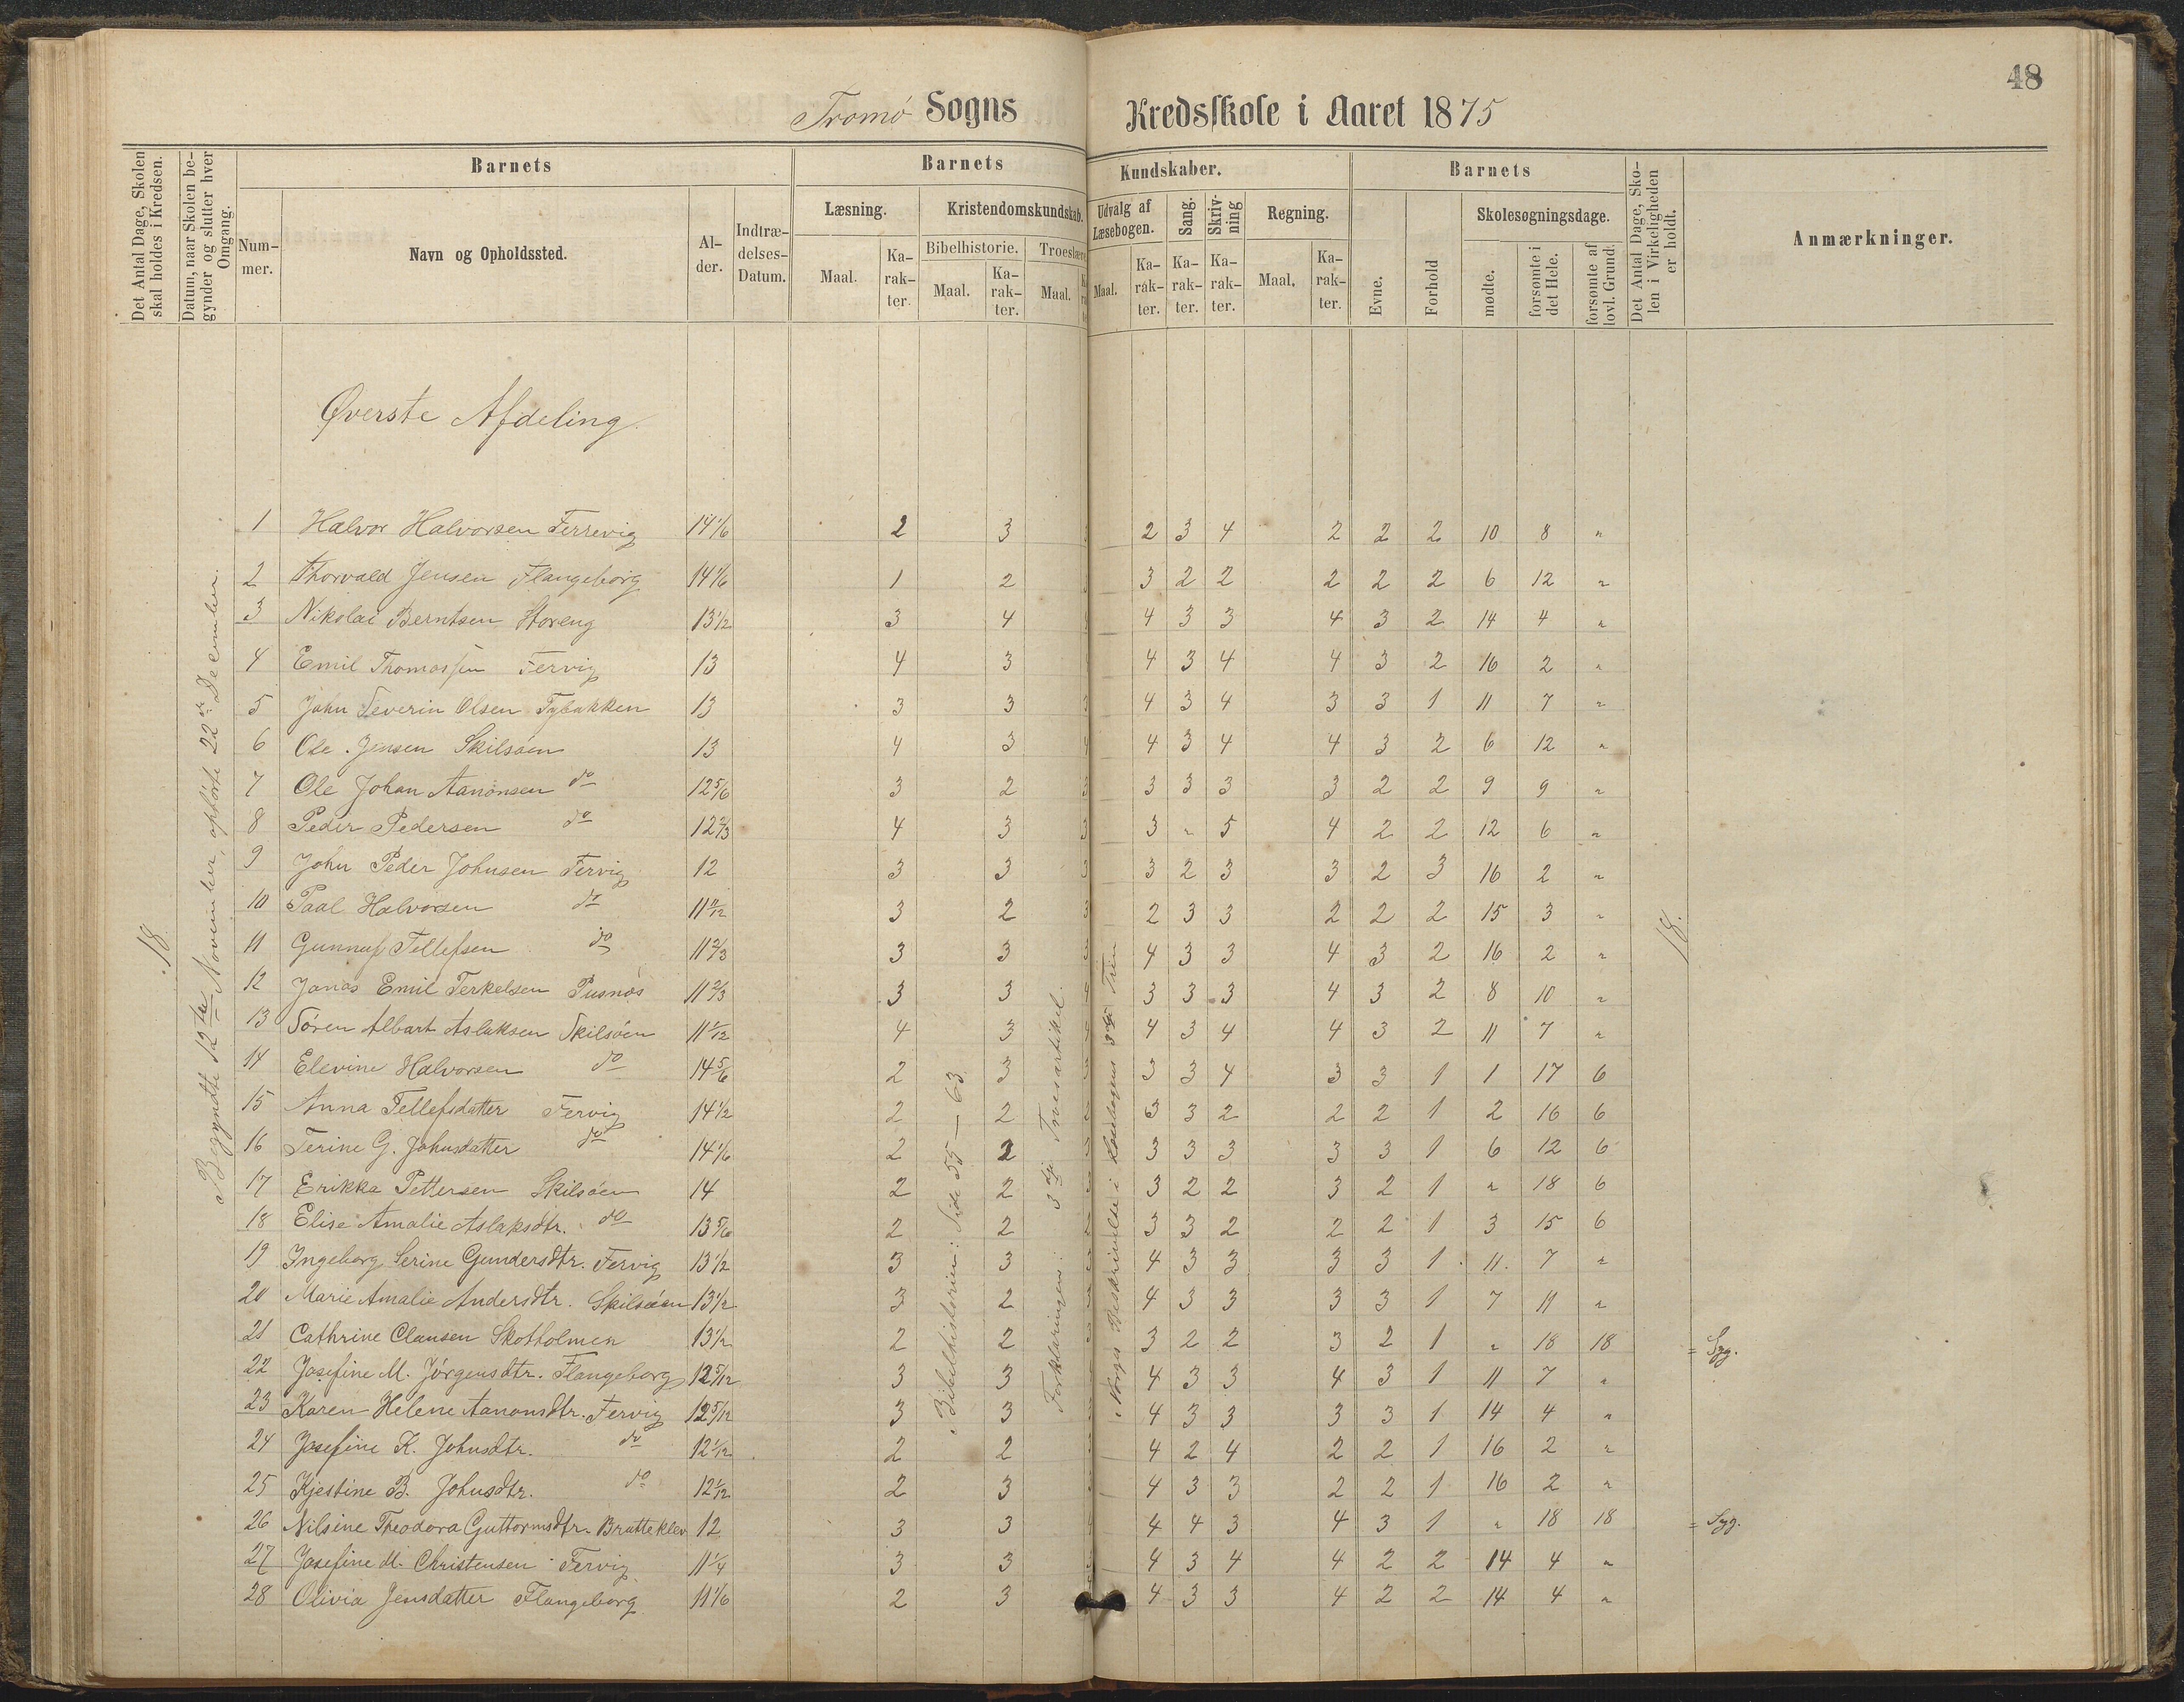 48
Tromø Sogns Kredsskole i Aaret 1875
Det Antal Dage, Skolen skal holdes i Kredsen.
Datum, naar Skolen begynder og slutter hver Omgang.
Barnets
Num-mer.
Navn og Opholdssted.
Al-der.
Indtræ-delses-Datum.
Barnets Kundskaber.
Læsning.
Maal.
Ka-rak-ter.
Kristendomskundskab.
Bibelhistorie.
Maal.
Ka-rak-ter.
Troeslære
Maal.
Udvalg af Læsebogen.
Maal.
Ka-rak-ter.
Sang.
Ka-rak-ter.
Skriv-ning
Ka-rak-ter.
Regning.
Maal.
Ka-rak-ter.
Barnets
Evne.
Forhold
Skolesøgningsdage.
mødte.
forsømte i det Hele.
forsømte af lovl. Grund.
Det Antal Dage, Sko-len i Virkeligheden er holdt.
Anmærkninger.
Øverste Afdeling.
18
Begyndte 12te November, ophørte 22de December.
Bibelhistorien: Side 55 — 63
Forklaringen: 3die Troesartikel.
Norges Beskrivelse i Læsebogens 3die Trin
18.
1 Halvor Halvorsen Ferrevig 14 1/6 2 3 2 3 4 2 2 2 10 8 "
2 Thorvald Jensen Flangeborg 14 1/6 1 2 3 2 2 2 2 2 6 12 "
3 Nikolai Berntsen Hoveng 13 1/2 3 4 4 3 3 4 3 2 14 4 "
4 Emil Thomassen Fervig 13 4 3 4 3 4 4 3 2 16 2 "
5 John Severin Olsen Tybakken 13 3 3 4 3 4 3 3 1 11 7 "
6 Ole Jensen Skilsøen 13 4 3 4 3 4 4 3 2 6 12 "
7 Ole Johan Aanonsen do 12 5/6 3 2 3 3 3 3 2 2 9 9 "
8 Peder Pedersen do 12 2/3 4 3 3 " 5 4 2 2 12 6 "
9 John Peder Johnsen Fervig 12 3 3 3 2 3 3 2 3 16 2 "
10 Paal Halvorsen do 11 11/12 3 2 2 3 3 2 2 2 15 3 "
11 Gunnuf Tellefsen do 11 2/3 3 3 4 3 3 4 3 2 16 2 "
12 Jonas Emil Terkelsen Pusnæs 11 2/3 3 3 3 3 3 4 3 2 8 10 "
13 Søren Albart Aslaksen Skilsøen 11 1/12 4 3 4 3 4 4 3 2 11 7 "
14 Elevine Halvorsen do 14 5/6 2 3 3 3 4 3 3 1 1 17 6
15 Anna Tellefsdatter Fervig 14 1/2 2 2 3 3 2 2 2 1 2 16 6
16 Terine G. Johnsdatter do 14 1/6 2 2 3 3 3 3 3 1 6 12 6
17 Erikka Pettersen Skilsøen 14 2 2 3 2 2 3 2 1 " 18 6
18 Elise Amalie Aslaksdtr. do 13 5/6 2 2 3 3 2 2 2 1 3 15 6
19 Ingeborg Serine Gundersdtr. Fervig 13 1/2 3 3 4 3 3 3 3 1 11 7 "
20 Marie Amalie Andersdtr. Skilsøen 13 1/2 3 2 4 3 3 3 3 1 7 11 "
21 Cathrine Clausen Skotholmen 13 1/2 2 2 3 2 2 3 2 1 " 18 18 = Syg.
22 Josefine M. Jørgensdtr. Flangeborg 12 5/12 3 3 4 3 3 4 3 1 11 7 "
23 Karen Helene Aanonsdtr. Fervig 12 5/12 3 3 4 3 3 3 3 1 14 4 "
24 Josefine K. Johnsdtr. do 12 1/12 2 2 4 2 4 2 2 1 16 2 "
25 Kjestine B. Johnsdtr. do 12 1/12 2 3 4 3 3 2 2 1 16 2 "
26 Nilsine Theodora Guttormsdtr. Bratteklev 12 3 3 4 4 3 4 3 1 " 18 18 = Syg.
27 Josefine M. Christensen Fervig 11 1/4 3 3 4 3 4 4 2 2 14 4 "
28 Olivia Jensdatter Flangeborg 11 1/6 2 3 4 3 3 4 2 2 14 4 "